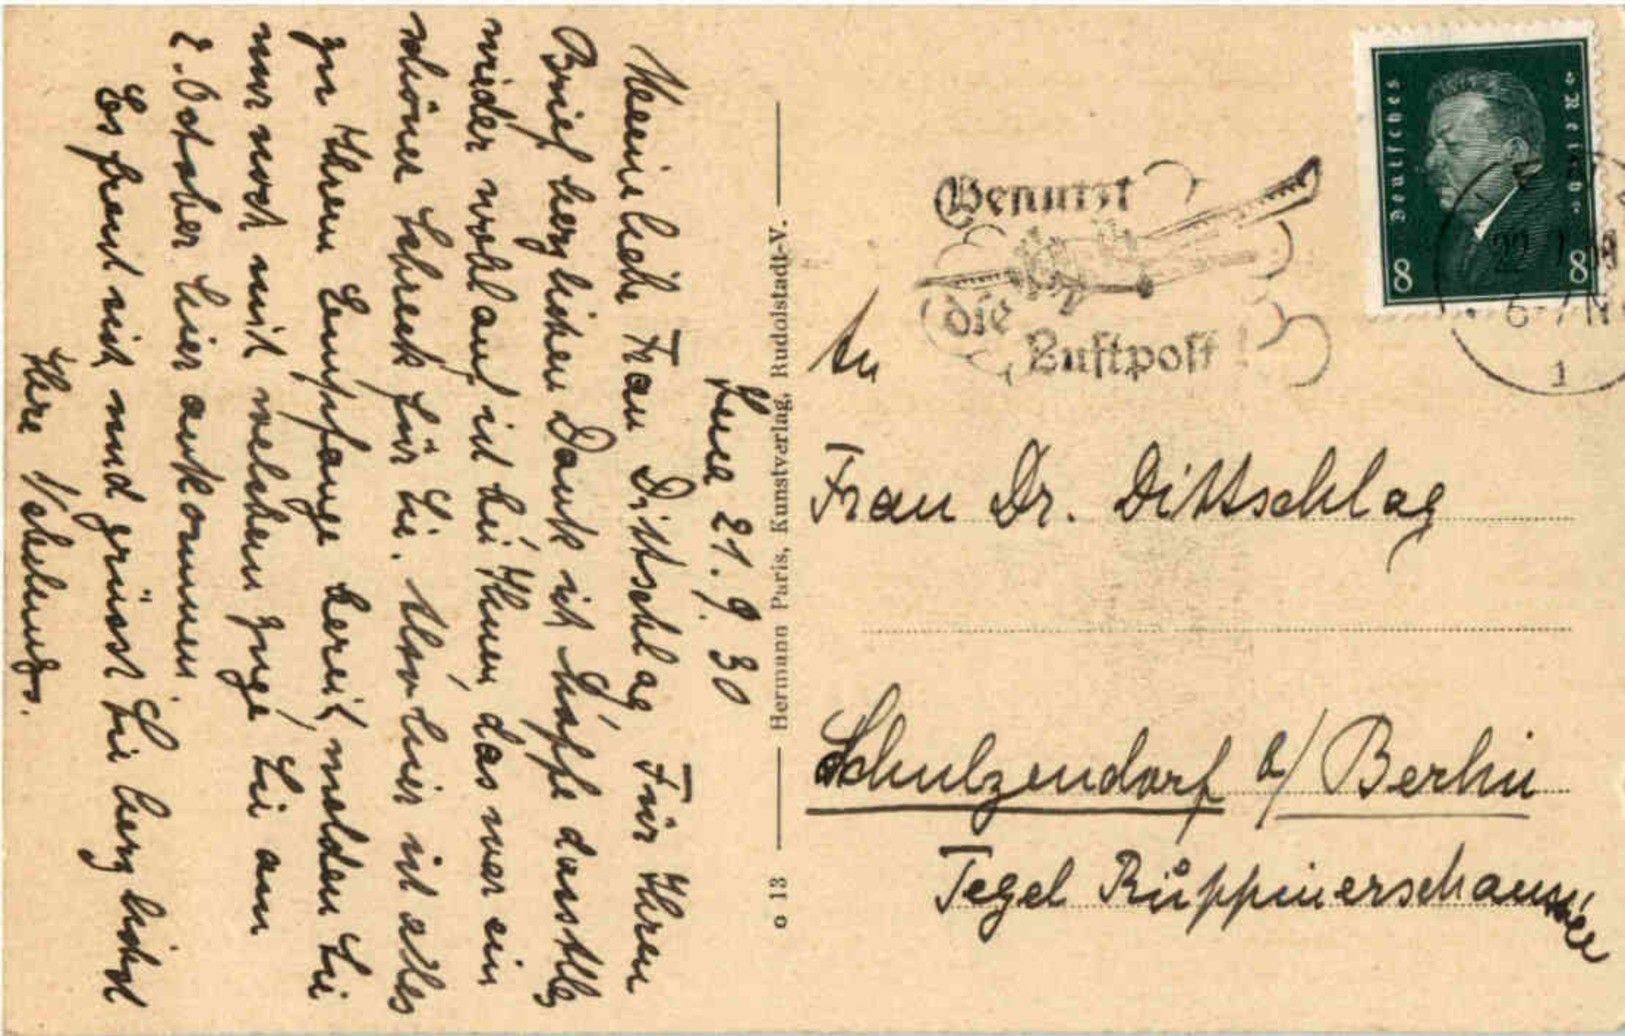 21. 9. 30
Meine liebe Frau Dittschlag, Für Ihren
Brief herzlichen Dank ich hoffe dass Alles
wieder wohlauf ist bei Ihnen, das war ein
schöner Schreck für Sie. Also hier ist alles
zu Ihrem Empfange bereit, melden Sie
nur noch mit welchem Zuge Sie am
2. October hier ankommen.
Es freut sich und grüsst Sie herzlichst
Ihre
o 13 Hermann Paris, Kunstverlag, Rudolstadt-V.
Deutsches Reich
8 8
Benutzt
die
Luftpost!
22
6-7 N
1
An
Frau Dr. Dittschlag
Schulzendorf b/ Berlin
Tegel Rüppinerschaussee